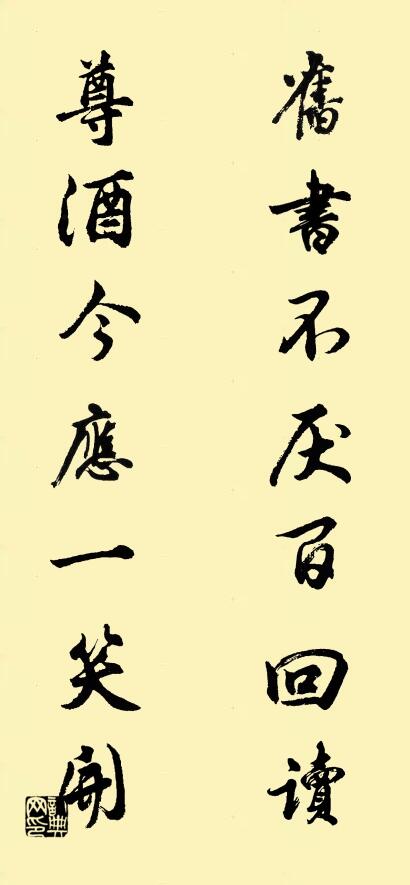 舊書不厌百回讀
尊酒今應一笑開